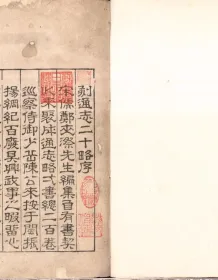 刻通志二十略序
宋儒鄭夾漈先生編集自有書契
以來聚成通志弌書總二百卷
巡察侍御少岳陳公來按于閩振
揚綱紀百廢具興政事之暇留心